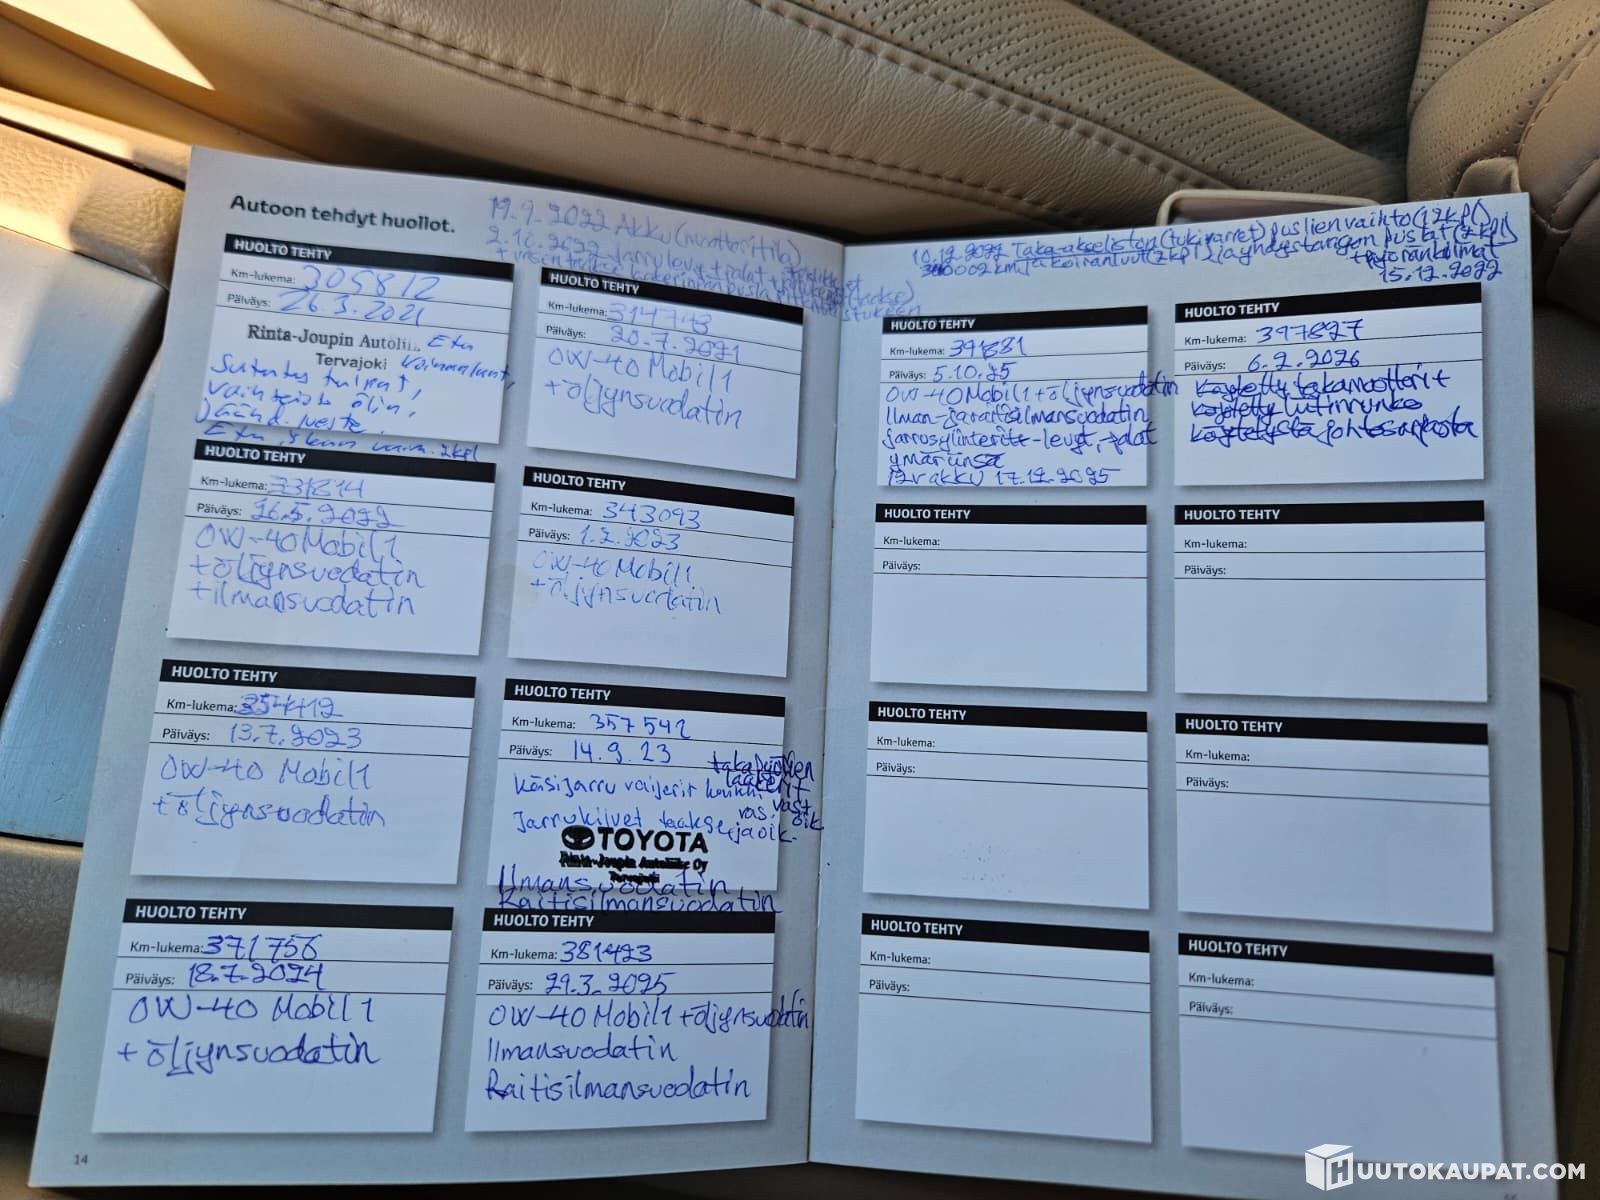 Autoon tehdyt huollot.
19.9.2022 Akku
2.10.2022 Jarrulevyt + palat
HUOLTO TEHTY
Km-lukema: 305812
Päiväys: 26.3.2021
Rinta-Joupin Autoliike Etu
Tervajoki
Sytytys tulpat,
öljyn,
Jäähd. neste
Etu 2kpl
HUOLTO TEHTY
Km-lukema: 314743
Päiväys: 20.7.2021
0W-40 Mobil1
+öljynsuodatin
HUOLTO TEHTY
Km-lukema: 331814
Päiväys: 26.5.2022
0W-40 Mobil1
+öljynsuodatin
+ilmansuodatin
HUOLTO TEHTY
Km-lukema: 343093
Päiväys: 1.2.2023
0W-40 Mobil1
+öljynsuodatin
HUOLTO TEHTY
Km-lukema: 354412
Päiväys: 13.7.2023
0W-40 Mobil1
+öljynsuodatin
HUOLTO TEHTY
Km-lukema: 357542
Päiväys: 14.9.23
takapyörien
laakerit
Käsijarru vaijerit
vas. oik
Jarrukilvet taakse
TOYOTA
Rinta-Joupin Autoliike Oy
Tervajoki
Ilmansuodatin
Raitisilmansuodatin
HUOLTO TEHTY
Km-lukema: 371756
Päiväys: 18.7.2024
0W-40 Mobil1
+ öljynsuodatin
HUOLTO TEHTY
Km-lukema: 381423
Päiväys: 29.3.2025
0W-40 Mobil1 +öljynsuodatin
Ilmansuodatin
Raitisilmansuodatin
14
10.12.2022 Taka-akseliston (tukivarret) puslien vaihto (12kpl)
340002km ja koiranluut (2kpl) ja yhdystangon puslat (2kpl)
+ pyöränkulmat
15.12.2022
HUOLTO TEHTY
Km-lukema: 391881
Päiväys: 5.10.25
0W-40 Mobil1 + öljynsuodatin
Ilman- ja raitisilmansuodatin
jarrusylinterit -levyt, -palat
ympäriinsä
12v akku 17.12.2025
HUOLTO TEHTY
Km-lukema: 397827
Päiväys: 6.2.2026
HUOLTO TEHTY
Km-lukema:
Päiväys:
HUOLTO TEHTY
Km-lukema:
Päiväys:
HUOLTO TEHTY
Km-lukema:
Päiväys:
HUOLTO TEHTY
Km-lukema:
Päiväys:
HUOLTO TEHTY
Km-lukema:
Päiväys:
HUOLTO TEHTY
Km-lukema:
Päiväys:
HUUTOKAUPAT.COM